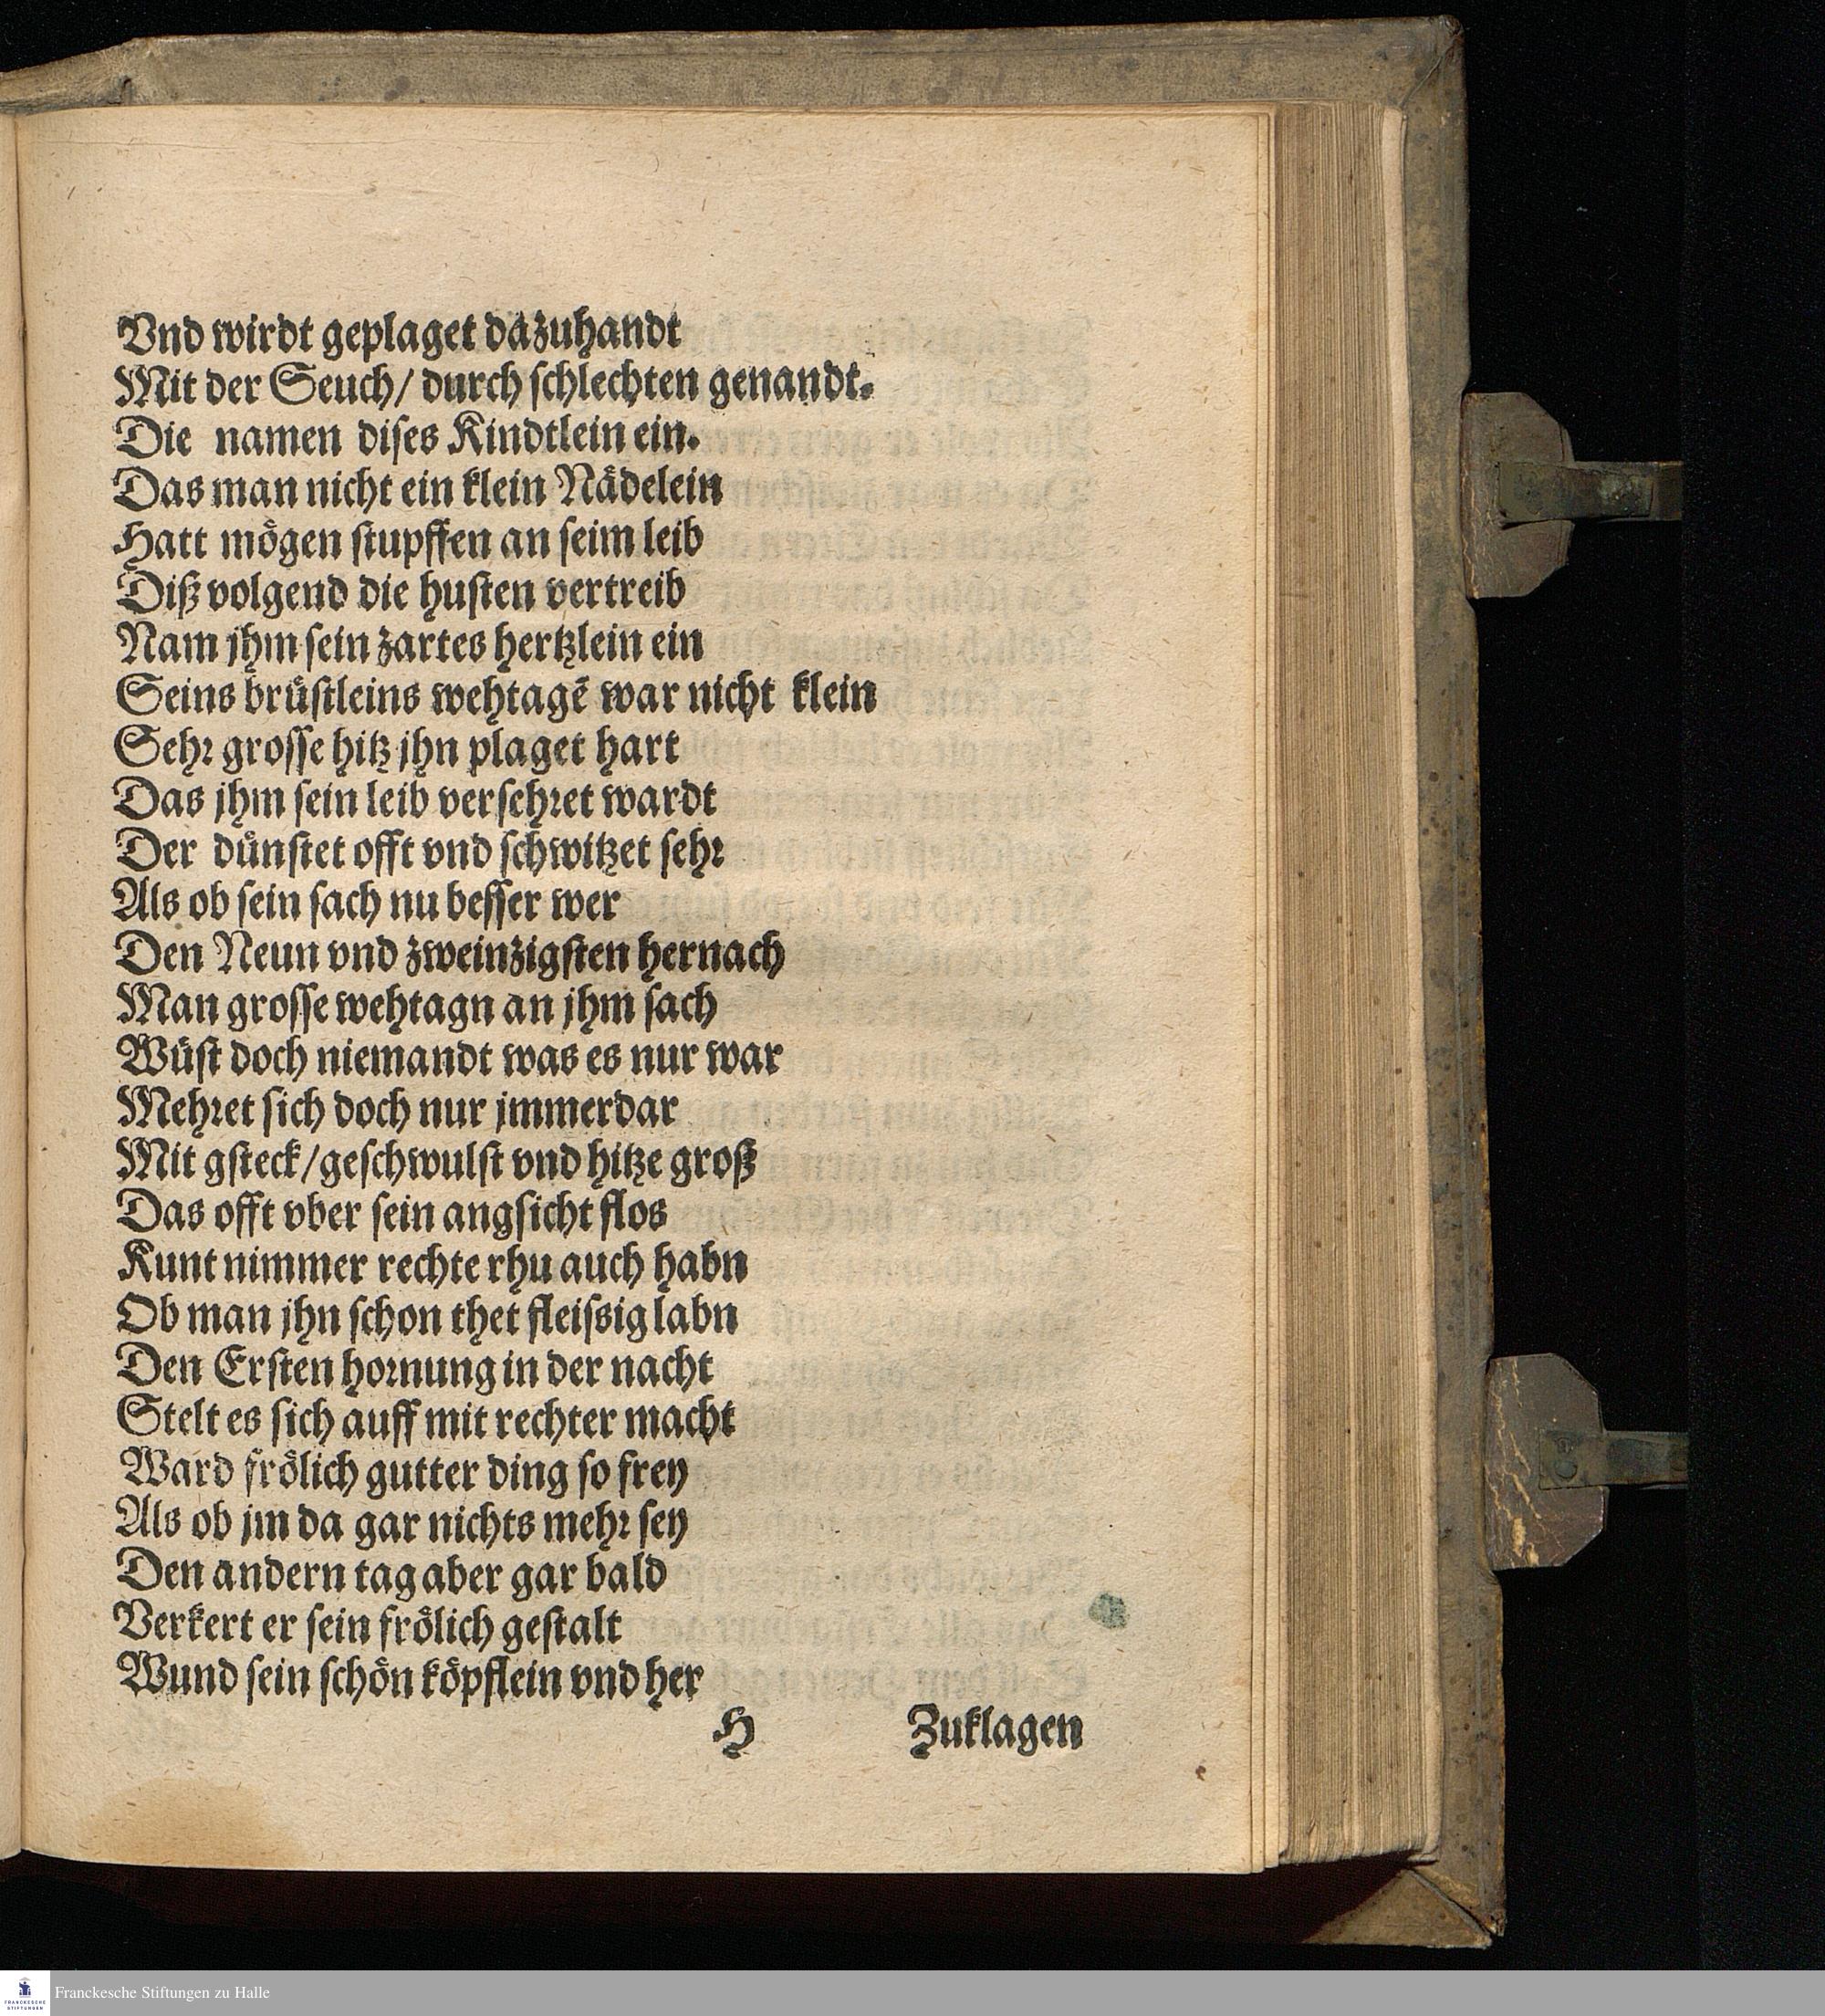 Vnd wirdt geplaget dazuhandt
Mit der Seuch/ durch ſchlechten genandt.
Die namen diſes Kindtlein ein.
Das man nicht ein klein Nådelein
Hatt mögen ſtupffen an ſeim leib
Diß volgend die huſten vertreib
Nam jhm ſein zartes hertzlein ein
Seins bruͤſtleins wehtagē war nicht klein
Sehr groſſe hitz jhn plaget hart
Das jhm ſein leib verſehret wardt
Der duͤnſtet offt vnd ſchwitzet ſehr
Als ob ſein ſach nu beſſer wer
Den Neun vnd zweinzigſten hernach
Man groſſe wehtagn an jhm ſach
Wuͤſt doch niemandt was es nur war
Mehret ſich doch nur jmmerdar
Mit gſteck/geſchwulſt vnd hitze groß
Das offt vber ſein angſicht flos
Kunt nimmer rechte rhu auch habn
Ob man jhn ſchon thet fleiſsig labn
Den Erſten hornung in der nacht
Stelt es ſich auff mit rechter macht
Ward froͤlich gutter ding ſo frey
Als ob jm da gar nichts mehr ſey
Den andern tag aber gar bald
Verkert er ſein froͤlich geſtalt
Wund ſein ſchoͤn koͤpflein vnd her
H Zuklagen
FRANCKESCHE STIFTUNGEN
Franckesche Stiftungen zu Halle